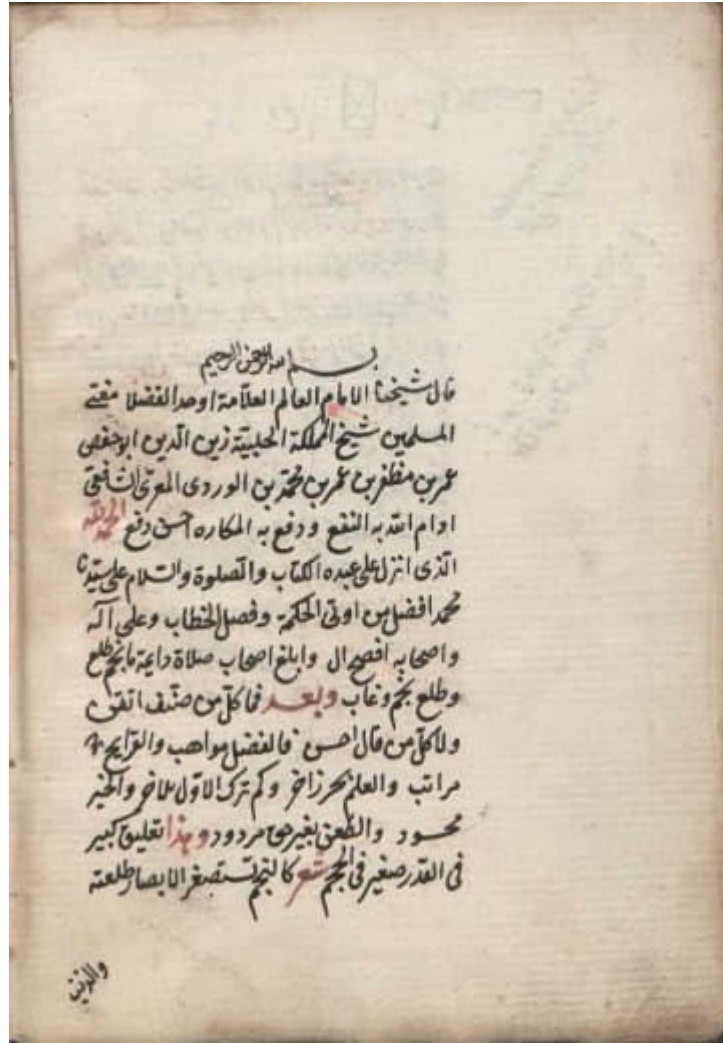 بسم الله الرحمن الرحيم
قال شيخنا الامام العالم العلامة اوحد الفضلا مفتى
المسلمين شيخ المملكة الحلبية زين الدين ابو حفص
عمر بن مظفر بن عمر بن محمد بن الوردى المعرى الشافعى
ادام الله به النفع ودفع به المكاره احسن دفع الحمد لله
الذى انزل على عبده الكتاب والصلوة والسلام على سيدنا
محمد افضل من اوتى الحكمة وفصل الخطاب وعلى آله
واصحابه افصح ال وابلغ اصحاب صلاة دايمة ما نجم طلع
وطلع نجم وغاب وبعد فما كل من صنف اتقن
ولا كل من قال احسن فالفضل مواهب والقرايح
مراتب والعلم بحر زاخر وكم ترك الاول للاخر والخير
محسود والطعن بغير حق مردود وهذا تعليق كبير
فى القدر صغير فى الحجم شعر كالنجم تستصغر الابصار طلعته
والذنب